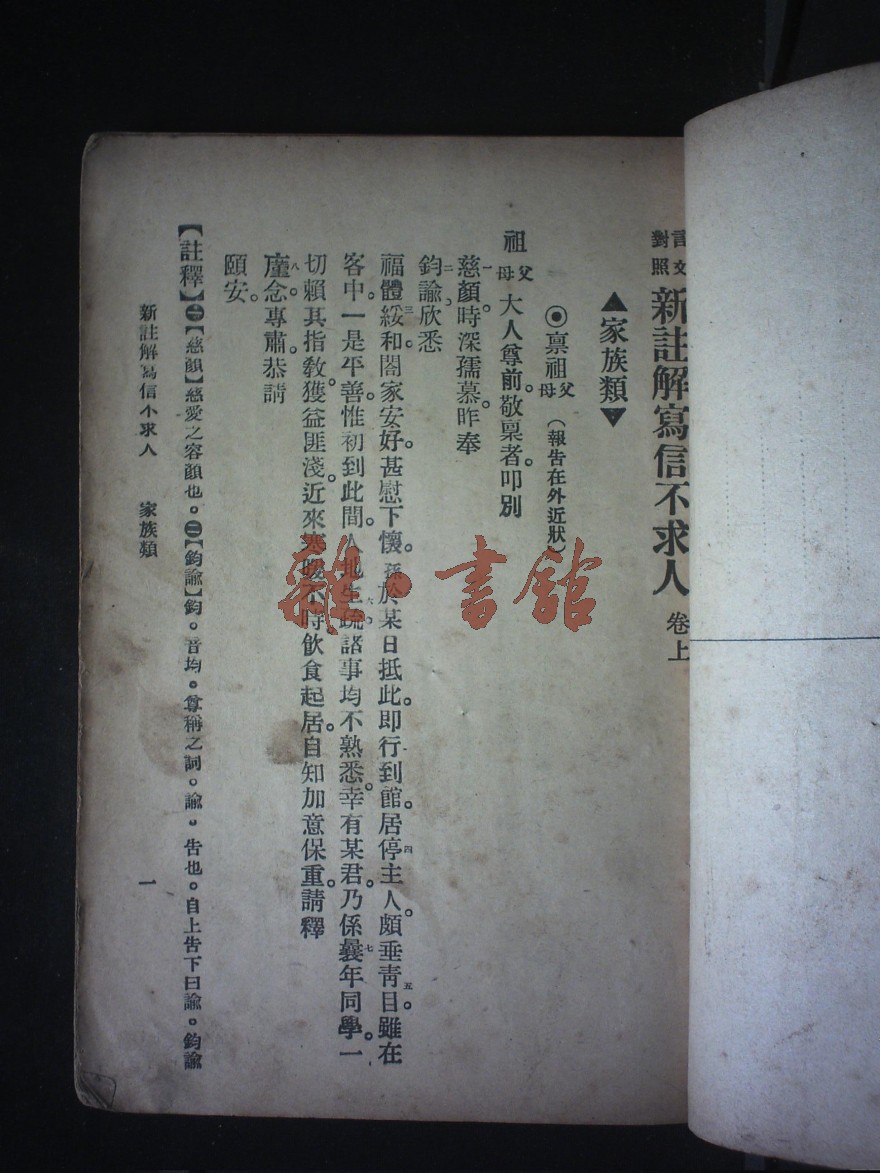 言文對照 新註解寫信不求人 卷上
▲家族類▼
◉禀祖父母（報告在外近狀）
祖父母大人尊前。敬禀者。叩別
慈顏。一時深孺慕。昨奉
鈞諭。二欣悉
福體綏和。三闔家安好。甚慰下懷。孫於某日抵此。即行到館。居停主人。四頗垂青目。五雖在
客中。一是平善。惟初到此間。人地生疏。六諸事均不熟悉。幸有某君。乃係曩年同學。七一
切賴其指教。獲益匪淺。近來寒暖不時。飲食起居。自知加意保重。請釋
廑念。八專肅。恭請
頤安。
【註釋】㊀【慈顏】慈愛之容顏也。㊁【鈞諭】鈞。音均。尊稱之詞。諭。告也。自上告下曰諭。鈞諭
新註解寫信不求人 家族類 一
雜·書館